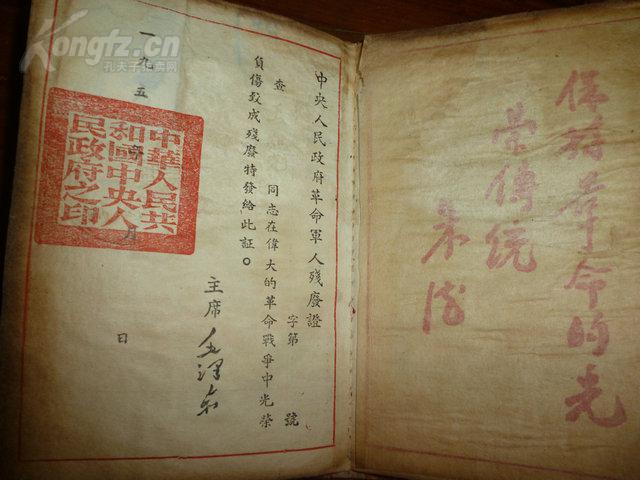 保持革命的光
荣傳统
朱德
中央人民政府革命軍人殘廢證
字第 號
查 同志在偉大的革命戰爭中光榮
負傷致成殘廢特發給此証。
主席 毛澤东
一九五 年 月 日
中華人民共
和國中央人
民政府之印
Kongfz.cn
孔夫子拍卖网